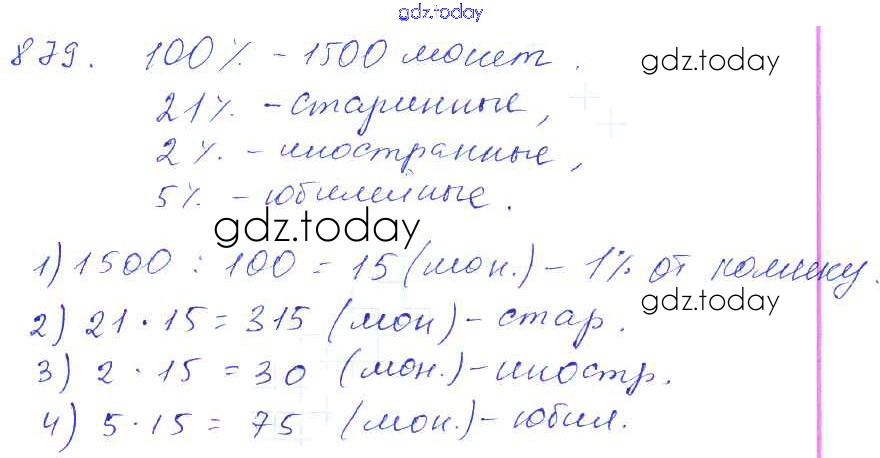 gdz.today
879. 100% - 1500 монет.
gdz.today
21% - старинные,
2% - иностранные,
5% - юбилейные.
gdz.today
1) 1500 : 100 = 15 (мон.) - 1% от
gdz.today
2) 21 · 15 = 315 (мон) - стар.
3) 2 · 15 = 30 (мон.) - иностр.
4) 5 · 15 = 75 (мон.) - юбил.